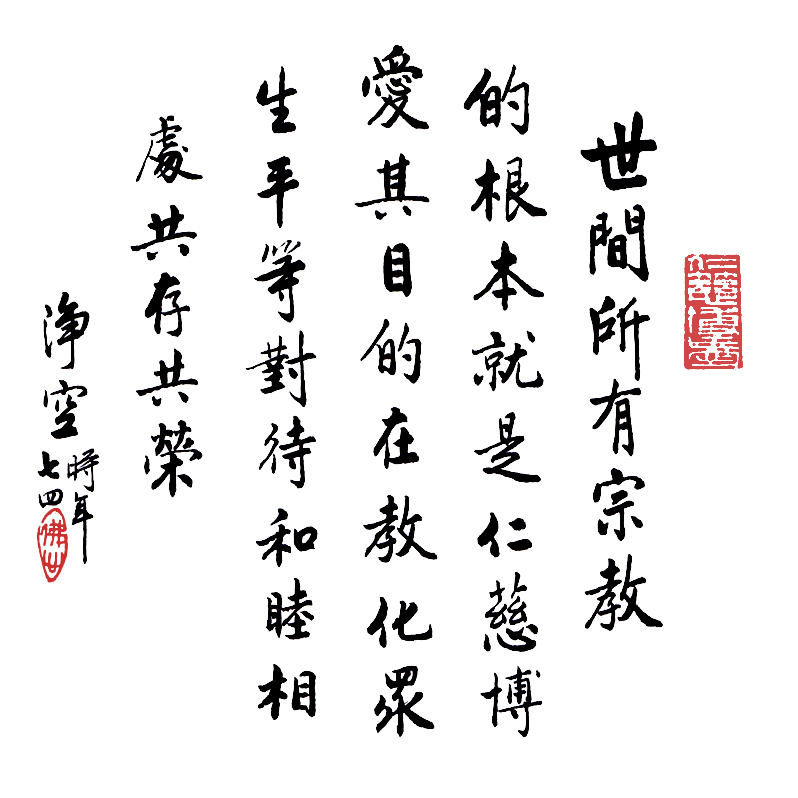 世間所有宗教
的根本就是仁慈博
愛其目的在教化眾
生平等對待和睦相
處共存共榮
淨空
時年
七四